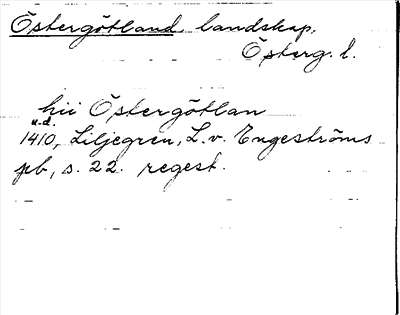 Östergötland, landskap.
Österg. l.
hii Östergötlan
u.d.
1410, Liljegren, L. v. Engeströms
pb, s. 22. regest.